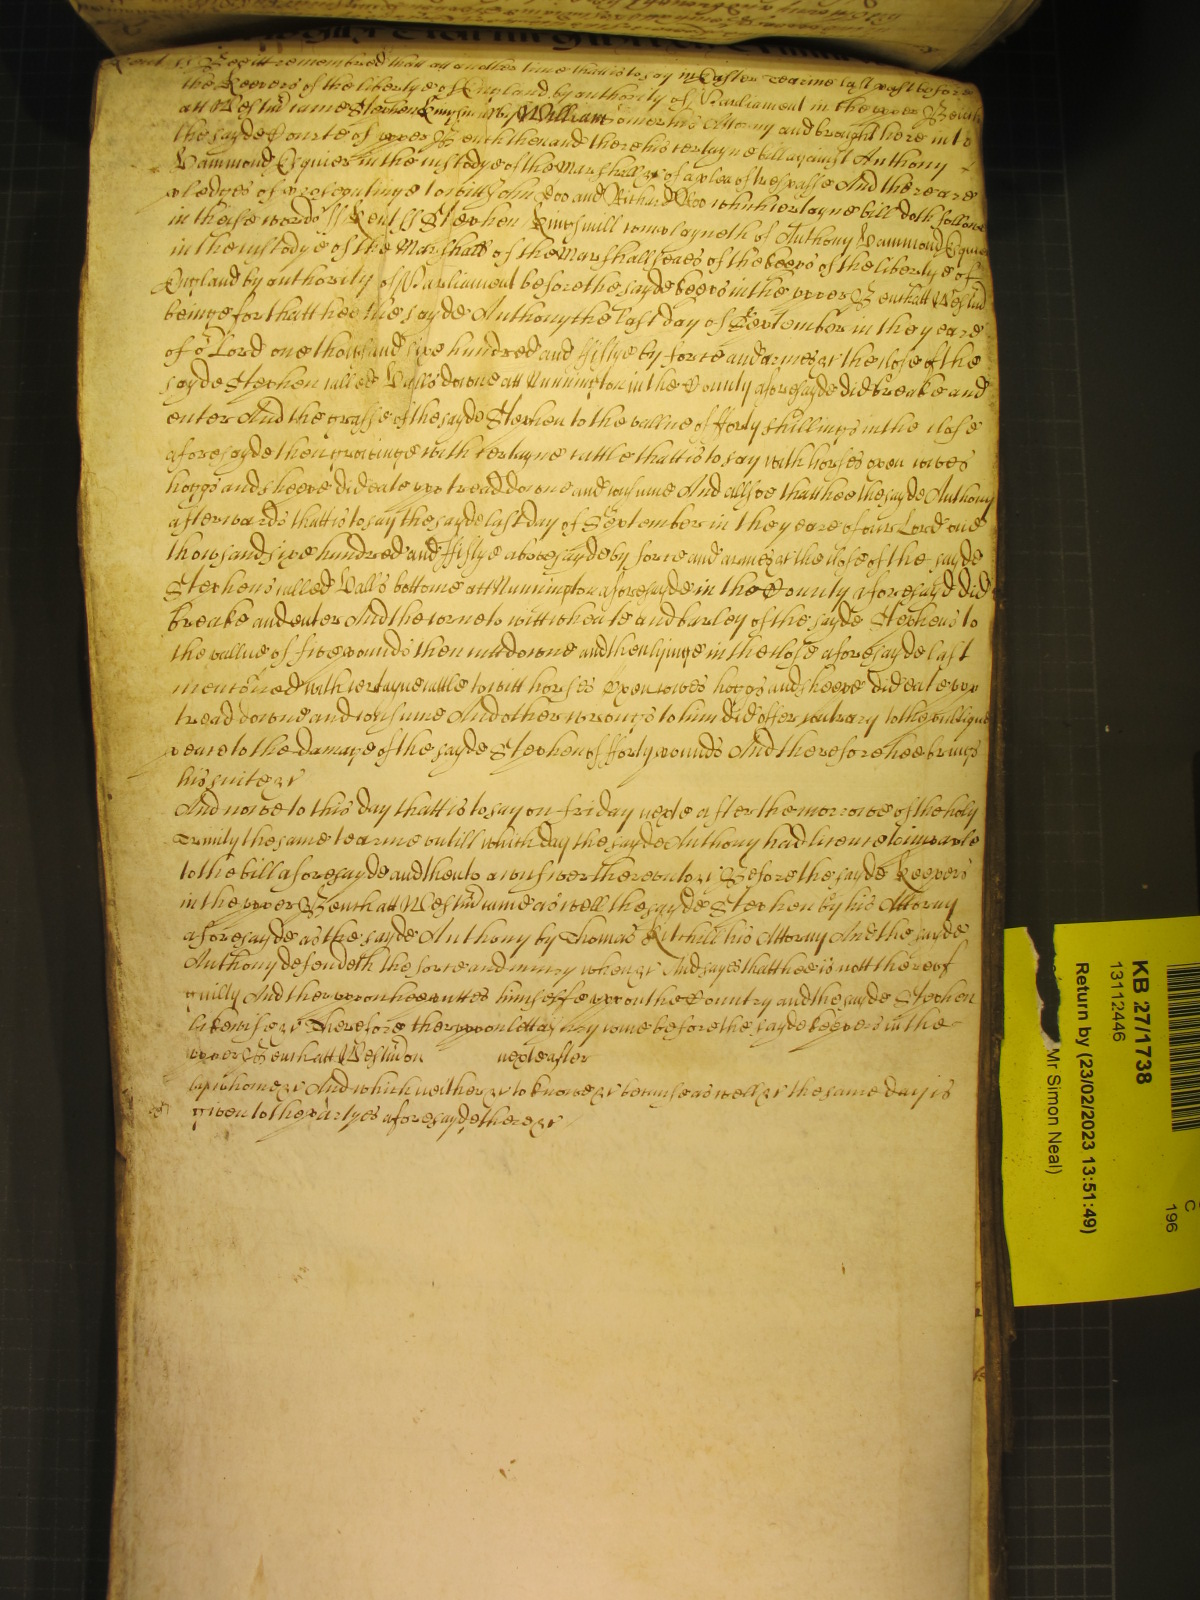 Kent ss Bee itt remembred that att another time that is to say in Easter Tearme last past before
the Keepers of the libertye of England by authority of Parliament in the upper Bench
att Westm came Stephen Kingsmill by William Somer his Attorny and brought here into
the sayde Courte of upper Bench then and there his certayne bill against Anthony
Hammond Esquier in the custodye of the Marshall &c of a plea of trespasse And there are
pledges of prosecutinge to witt John Doo and Richard Roo which certayne bill doth followe
in theise words ss Kent ss Stephen Kingsmill complayneth of Anthony Hammond Esquier
in the custodye of the Marshall of the Marshallseas of the keeps of the libertye of
England by authority of Parliament before the sayde keeps in the upper Bench att Westm
beinge for that hee the sayde Anthony the last day of September in the yeare
of or Lord one thowsand sixe hundred and fiftye by force and armes &c the close of the
sayde Stephen called downe att Nunnington in the County aforesayde did breake and
enter And the grasse of the sayde Stephen to the vallue of forty shillings in the close
aforesayde then growinge with certayne cattle that is to say with horses oxen cowes
hoggs and sheepe did eate upp tread downe and consume And allsoe that hee the sayde Anthony
afterwards that is to say the sayde last day of September in the yeare of our Lord one
thowsand sixe hundred and fiftye abovesayde by force and armes &c the close of the sayde
Stephens called bottome att Nunnington aforesayde in the County aforesayd did
breake and enter And the corne to witt wheate and barley of the sayde Stephens to
the vallue of five pounds then cutt downe and then lyinge in the close aforesayde last
mencõned with certayne cattle to witt horses Oxen cowes hoggs and sheepe did eate upp
tread downe and consume And other wrongs to him did offer contrary to the publique
peace to the damage of the sayde Stephen of forty pounds And therefore hee brings
his suite &c
And nowe to this day that is to say on Friday next after the morrowe of the holy
Trinity the same tearme untill which day the sayde Anthony had licence to imparle
to the bill aforesayde and then to answer thereunto &c Before the sayde Keepers
in the upper Bench att Westm came as well the sayde Stephen by his Attorny
aforesayde as the sayde Anthony by Thomas his Attorny And the sayde
Anthony defendeth the force and iniury when &c And sayes that hee is nott thereof
guilty And thereupon hee puttes himselfe uppon the Country and the sayde Stephen
likewise &c Therefore thereuppon lett a iury come before the sayde keepers in the
upper Bench att Westm on next after
by whome &c And which neither &c to knowe &c because as well &c the same day is
given to the partyes aforesayde there &c
KB 27/1738
13112446
Return by (23/02/2023 13:51:49)
Mr Simon Neal)
C
196